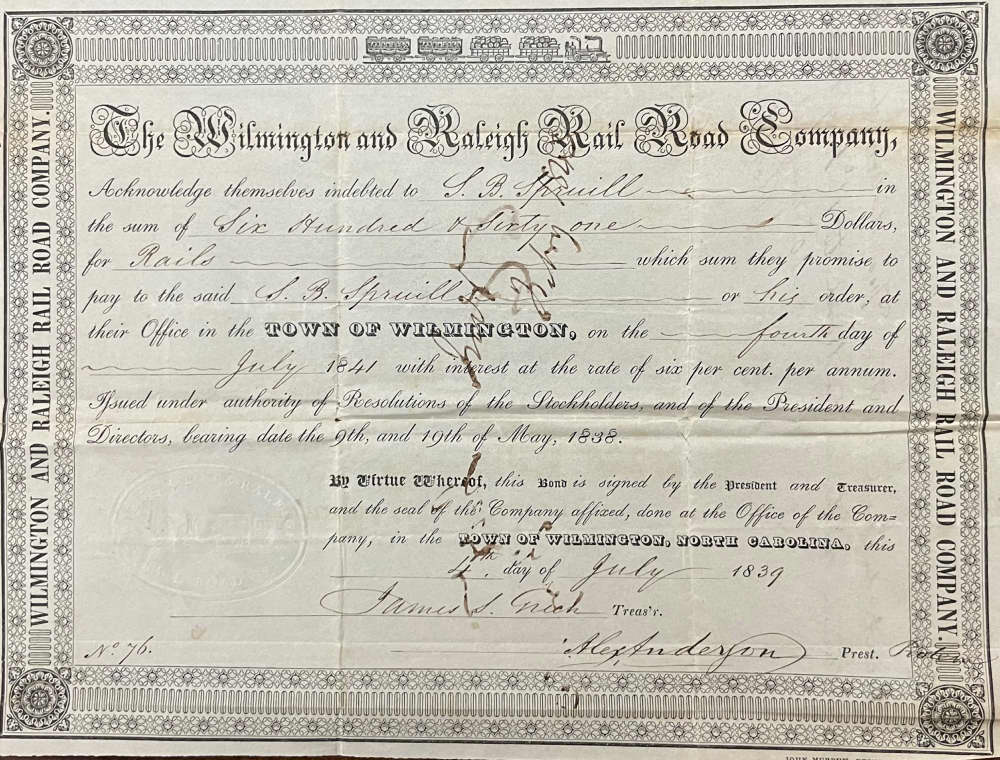 The Wilmington and Raleigh Rail Road Company,
Acknowledge themselves indebted to S. B. Spruill in
the sum of Six Hundred & Sixty one Dollars,
for Rails which sum they promise to
pay to the said S. B. Spruill or his order, at
their Office in the TOWN OF WILMINGTON, on the fourth day of
July 1841 with interest at the rate of six per cent. per annum.
Issued under authority of Resolutions of the Stockholders, and of the President and
Directors, bearing date the 9th, and 19th of May, 1838.
By Virtue Whereof, this Bond is signed by the President and Treasurer,
and the seal of the Company affixed, done at the Office of the Com=
pany, in the TOWN OF WILMINGTON, NORTH CAROLINA, this
4th day of July 1839
James S. Treas'r.
No 76. Alex Anderson Prest.
WILMINGTON AND RALEIGH RAIL ROAD COMPANY.
WILMINGTON AND RALEIGH RAIL ROAD COMPANY.